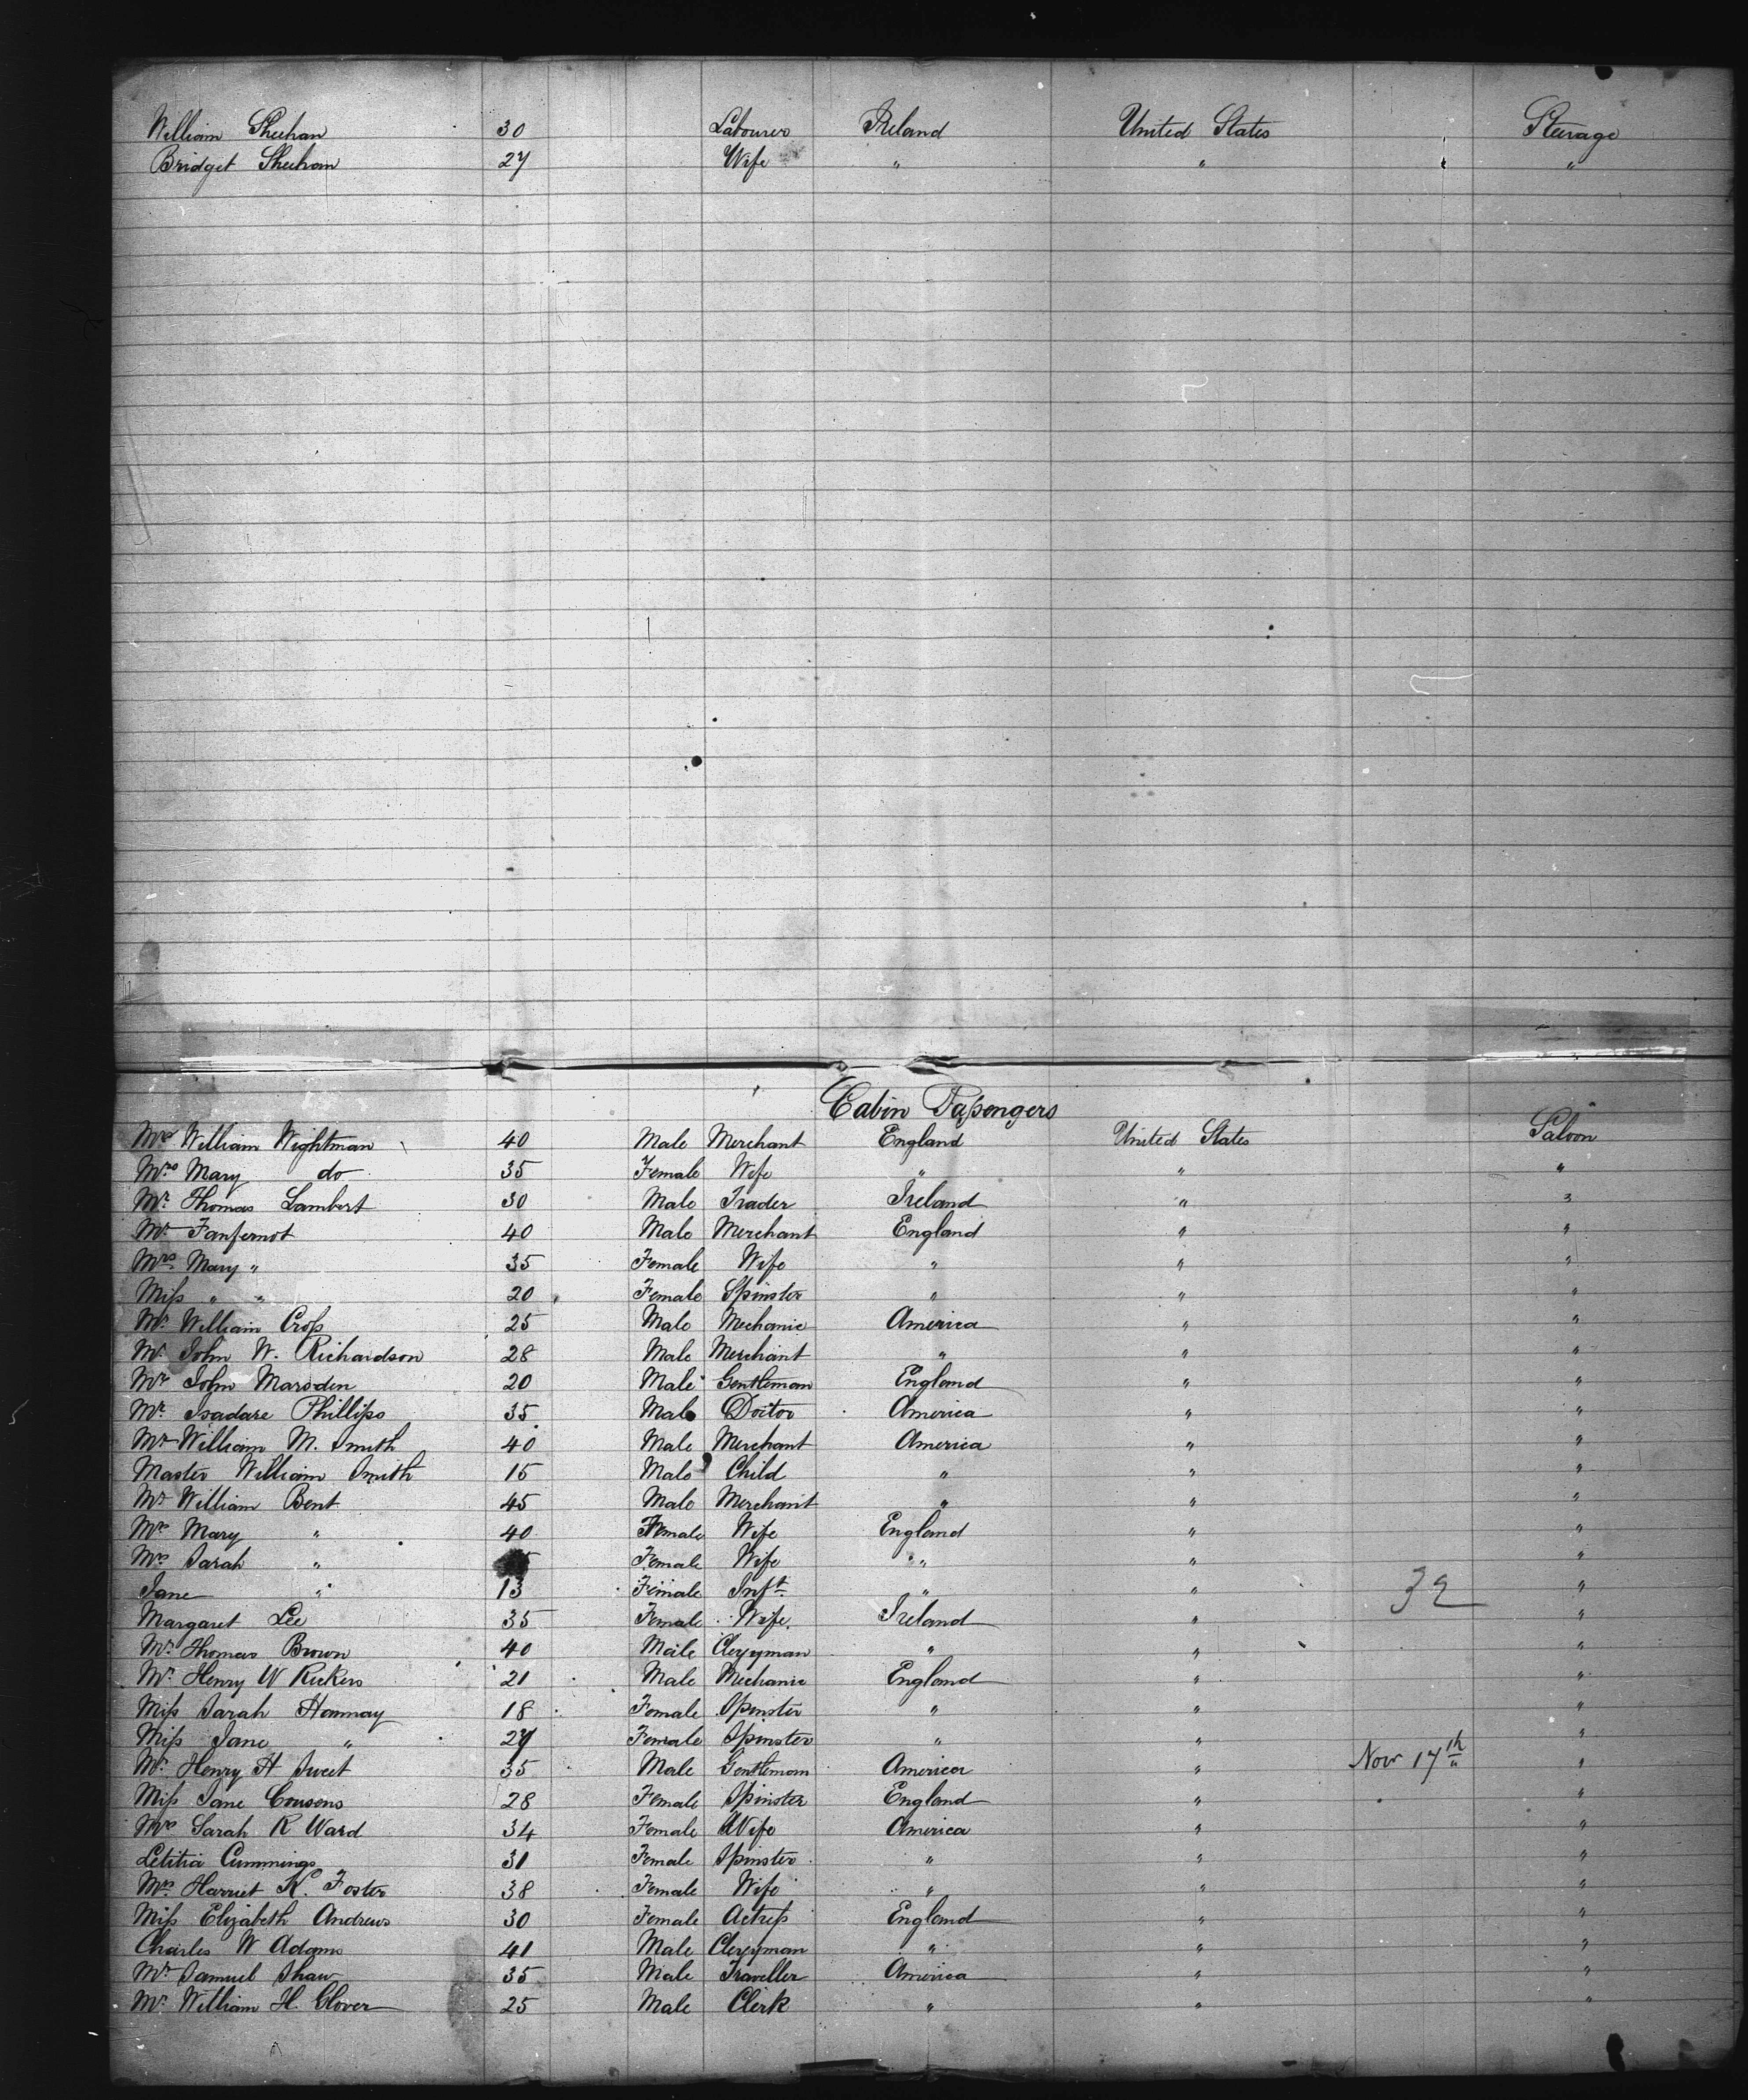 William Sheehan 30 Labourer Ireland United States Steerage
Bridget Sheehan 27 Wife " " "
Cabin Passengers
Mr William Wightman 40 Male Merchant England United States Saloon
Mrs Mary do 35 Female Wife " " "
Mr Thomas Lambert 30 Male Trader Ireland " "
Mr Fanfernot 40 Male Merchant England " "
Mrs Mary " 35 Female Wife " " "
Miss " " 20 Female Spinster " " "
Mr William Cross 25 Male Mechanic America " "
Mr John W. Richardson 28 Male Merchant " " "
Mr John Marsden 20 Male Gentleman England " "
Mr Isadare Phillips 35 Male Doctor America " "
Mr William M. Smith 40 Male Merchant America " "
Master William Smith 15 Male Child " " "
Mr William Bent 45 Male Merchant " " "
Mrs Mary " 40 Female Wife England " "
Mrs Sarah " Female Wife " " "
Jane " 13 Female Inft " " 32 "
Margaret Lee 35 Female Wife. Ireland " "
Mr Thomas Brown 40 Male Clergyman " " "
Mr Henry W Rickers 21 Male Mechanic England " "
Miss Sarah Hannay 18 Female Spinster " " "
Miss Jane " 27 Female Spinster " " "
Mr Henry H Sweet 35 Male Gentleman America " Nov 17th "
Miss Jane Cousens 28 Female Spinster England " "
Mrs Sarah R Ward 34 Female Wife America " "
Letitia Cummings 31 Female Spinster " " "
Mrs Harriet K. Foster 38 Female Wife " " "
Miss Elizabeth Andrews 30 Female Actress England " "
Charles W Adams 41 Male Clergyman " " "
Mr Samuel Shaw 35 Male Traveller America " "
Mr William H. Glover 25 Male Clerk " " "